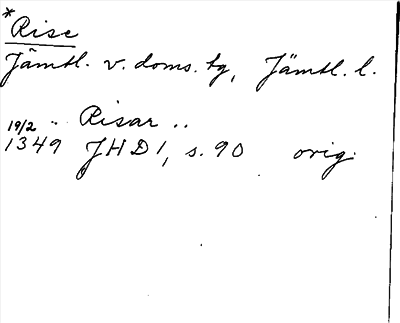 *Rise
Jämtl. v. doms. tg, Jämtl. l.
19/2 .. Risar ..
1349 JHD 1, s. 90 orig.